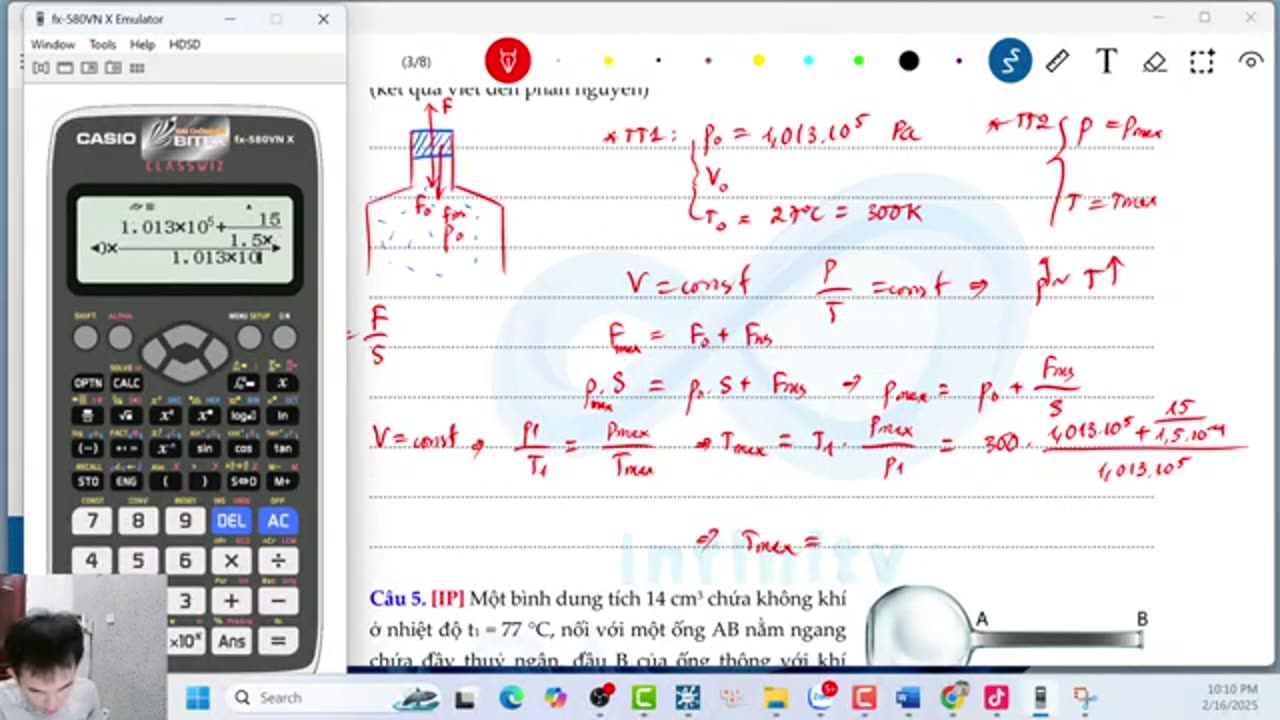 fx-580VN X Emulator
Window Tools Help HDSD
CASIO BITEX fx-580VN X
CLASSWIZ
1.013×10⁵+ 15
◀)× 1.5× ▶
1.013×10
SHIFT ALPHA MENU SETUP ON
OPTN CALC x
ln
(−) sin cos tan
STO ENG ( ) S⇔D M+
7 8 9 DEL AC
4 5 6 × ÷
3 + −
×10ˣ Ans =
(3/8)
T
(Kết quả viết đến phần nguyên)
F
F₀
p₀
* TT1: p₀ = 1,013.10⁵ Pa
V₀
T₀ = 27°C = 300K
* TT2 { p = pmax
T = Tmax
V = const p/T = const ⇒ p↑ ~ T↑
= F/S
Fmax = F₀ + Fms
pmax.S = p₀.S + Fms → pmax = p₀ + Fms/S
V = const ⇒ p1/T1 = pmax/Tmax ⇒ Tmax = T1 . pmax/p1 = 300 . (1,013.10⁵ + 15/1,5.10⁻⁴)/1,013.10⁵
⇒ Tmax =
Infinity
Câu 5. [IP] Một bình dung tích 14 cm³ chứa không khí
ở nhiệt độ t₁ = 77 °C, nối với một ống AB nằm ngang
chứa đầy thuỷ ngân, đầu B của ống thông với khí
A B
Search
10:10 PM
2/16/2025